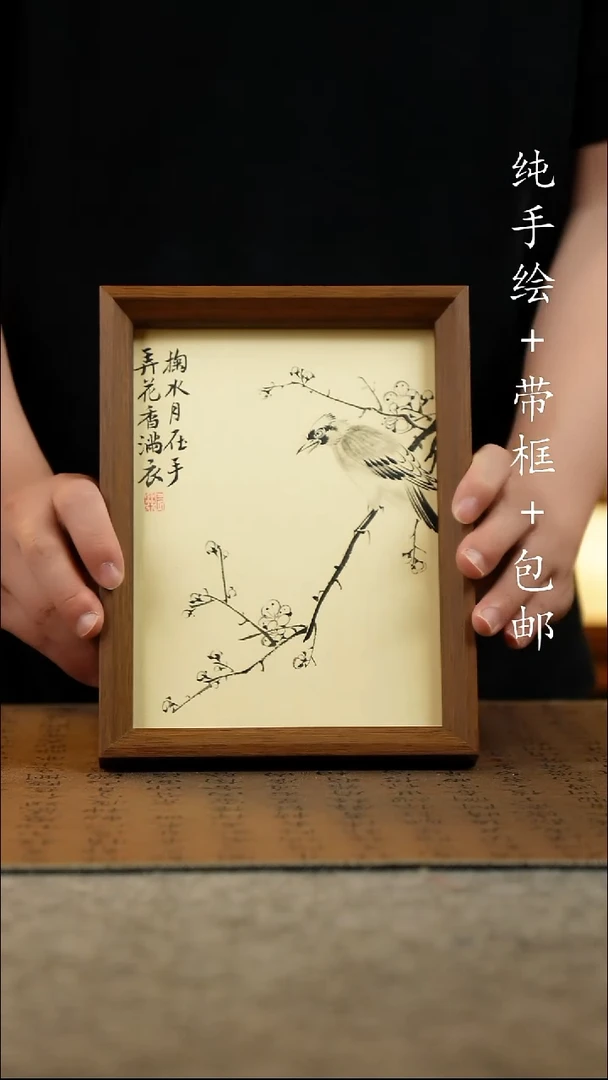 纯手绘+带框+包邮
掬水月在手
弄花香满衣